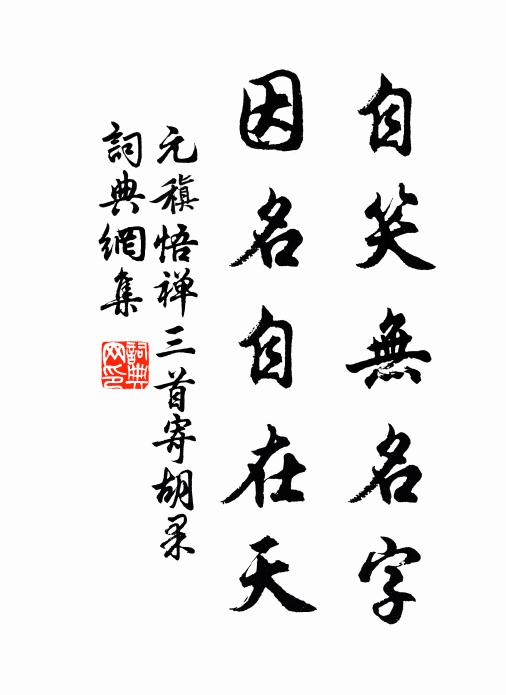 自笑無名字
因名自在天
元稹悟禅三首寄胡杲
詞典網集
詞典網印